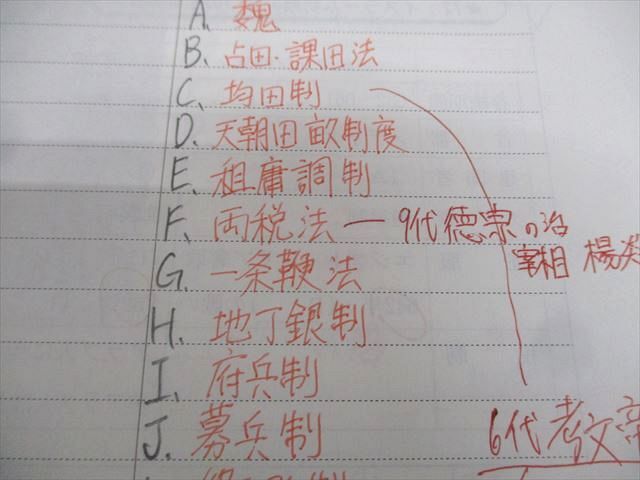 A. 魏
B. 占田・課田法
C. 均田制
D. 天朝田畝制度
E. 租庸調制
F. 両税法 ー 9代徳宗の治
宰相 楊炎
G. 一条鞭法
H. 地丁銀制
I. 府兵制
J. 募兵制
6代孝文帝